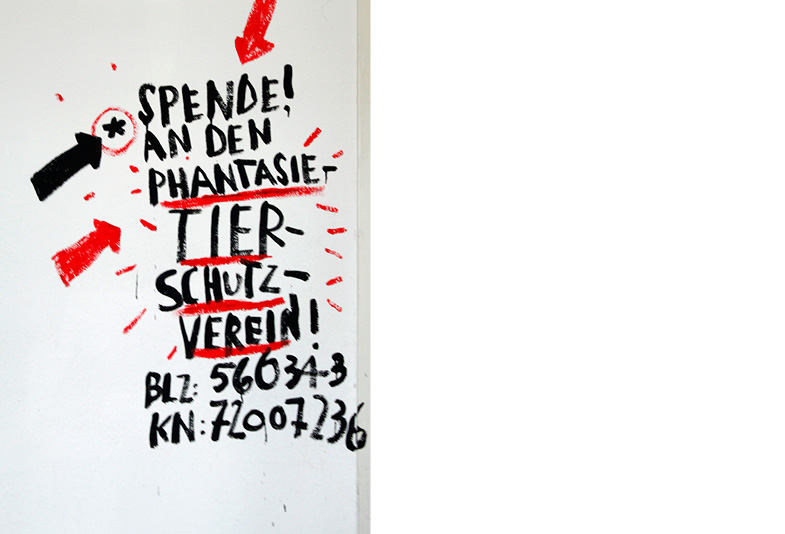 * SPENDE!
AN DEN
PHANTASIE-
TIER-
SCHUTZ-
VEREIN!
BLZ: 56634-3
KN: 72007236